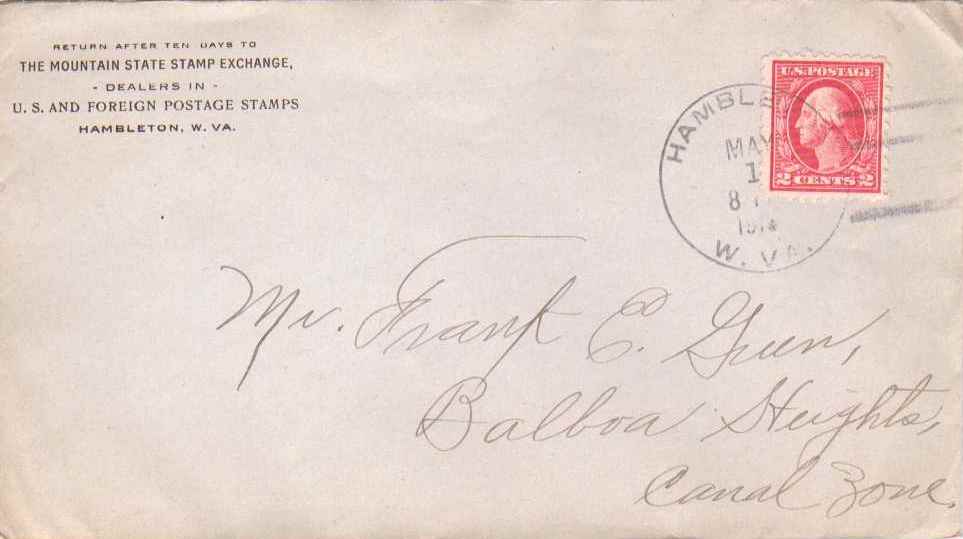 RETURN AFTER TEN DAYS TO
THE MOUNTAIN STATE STAMP EXCHANGE,
- DEALERS IN -
U. S. AND FOREIGN POSTAGE STAMPS
HAMBLETON, W. VA.
U.S. POSTAGE
2 CENTS 2
HAMBLE
MAY
1
8
1914
W. VA.
Mr. Frank C. Green,
Balboa Heights,
Canal Zone.